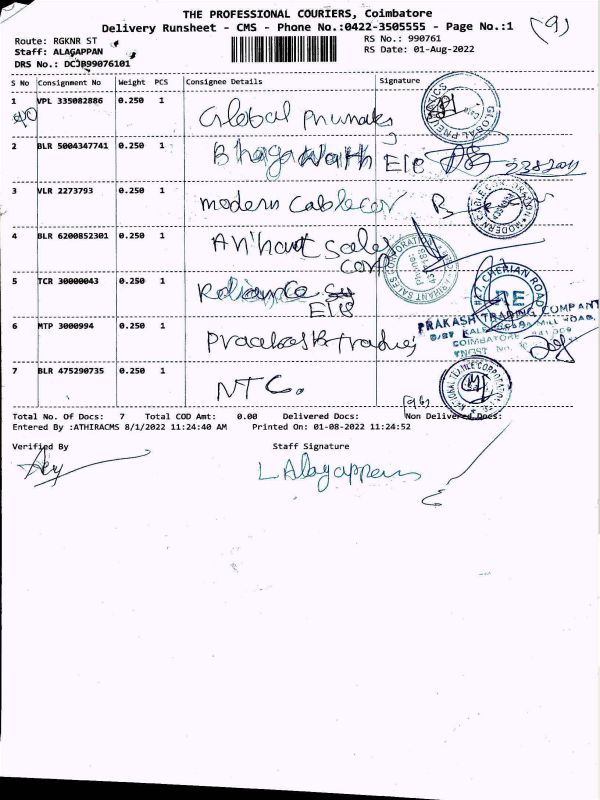 THE PROFESSIONAL COURIERS, Coimbatore
Delivery Runsheet - CMS - Phone No.:0422-3505555 - Page No.:1
(9)
Route: RGKNR ST
RS No.: 990761
Staff: ALAGAPPAN
RS Date: 01-Aug-2022
DRS No.: DCJB99076101
S No Consignment No Weight PCS Consignee Details Signature
1 VPL 335082886 0.250 1 Global Pnumaks
2 BLR 5004347741 0.250 1 Bhagawath Ele
3 VLR 2273793 0.250 1 modern Cablecor
4 BLR 6200852301 0.250 1 Arihant Sales
Corp
5 TCR 30000043 0.250 1 Reliance
Ele
6 MTP 3000994 0.250 1
PRAKASH TRADING COMPANY
COIMBATORE
7 BLR 475290735 0.250 1 NTC.
Total No. Of Docs: 7 Total COD Amt: 0.00 Delivered Docs: Non Delivered Docs:
Entered By :ATHIRACMS 8/1/2022 11:24:40 AM Printed On: 01-08-2022 11:24:52
Verified By Staff Signature
L Alagappan